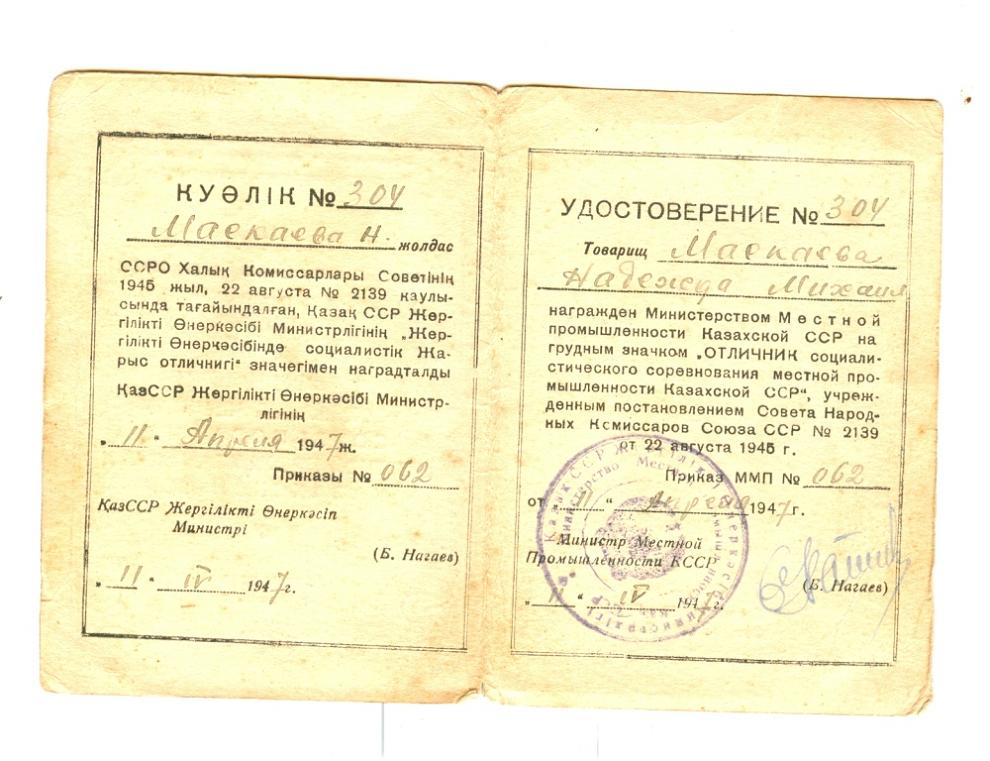 КУӘЛІК № 304
Маскаева Н. жолдас
ССРО Халық Комиссарлары Советінің
1945 жыл, 22 августа № 2139 каулы-
сында тағайындалған, Қазақ ССР Жер-
гілікті Өнеркәсібі Министрлігінің „Жер-
гілікті Өнеркәсібінде социалистік Жа-
рыс отличнигі“ значегімен наградталды
ҚазССР Жергілікті Өнеркәсібі Министр-
лігінің
„11“ Апреля 1947ж.
Приказы № 062
ҚазССР Жергілікті Өнеркәсіп
Министрі
(Б. Нагаев)
„11“ IV 1947г.
УДОСТОВЕРЕНИЕ № 304
Товарищ Маскаева
Надежда Михаил
награжден Министерством Местной
промышленности Казахской ССР на
грудным значком „ОТЛИЧНИК социали-
стического соревнования местной про-
мышленности Казахской ССР“, учреж-
денным постановлением Совета Народ-
ных Комиссаров Союза ССР № 2139
от 22 августа 1945 г.
Приказ ММП № 062
от „11“ Апреля 1947г.
Министр Местной
Промышленности КССР
(Б. Нагаев)
„ “ IV 1947г.